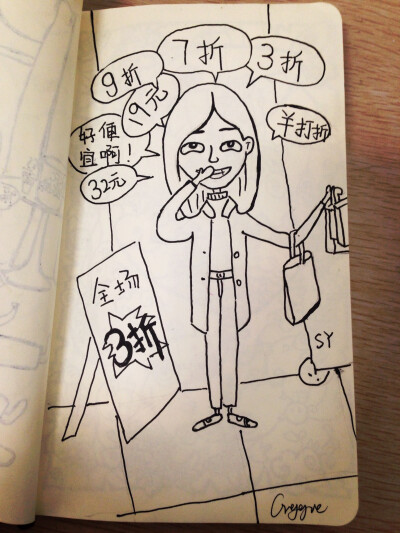 7折
3折
9折
19元
¥打折
好便
宜啊！
32元
全场
3折
SY